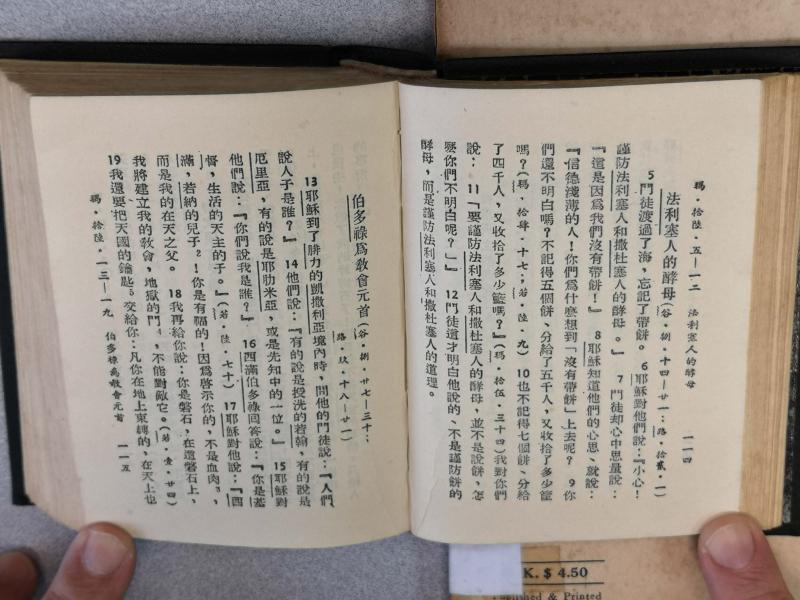 瑪・拾陸・五—一二　法利塞人的酵母　一一四
法利塞人的酵母(谷・捌・十四—廿一；路・拾貳・一)
5 門徒渡過了海，忘記了帶餅。 6 耶穌對他們說：『小心！
謹防法利塞人和撒杜塞人的酵母。』 7 門徒却心中思量說：
『這是因爲我們沒有帶餅！』 8 耶穌知道他們的心思、就說：
『信德淺薄的人！你們爲什麼想到「沒有帶餅」上去呢？ 9 你
們還不明白嗎？不記得五個餅、分給了五千人，又收拾了多少籃
嗎？(瑪，拾肆・十七；若・陸・九) 10 也不記得七個餅、分給
了四千人，又收拾了多少籃嗎？』(瑪・拾伍・三十四)我對你們
說： 11 「要謹防法利塞人和撒杜塞人的酵母，並不是說餅，怎
麼你們不明白呢？」』 12 門徒這才明白他說的、不是謹防餅的
酵母，而是謹防法利塞人和撒杜塞人的道理。
伯多祿爲教會元首(谷・捌・廿七—三十；
路・玖・十八—廿一)
13 耶穌到了腓力的凱撒利亞境內時，問他的門徒說：『人們
說人子是誰？』 14 他們說：『有的說是授洗的若翰，有的說是
厄里亞，有的說是耶肋米亞，或是先知中的一位。』 15 耶穌對
他們說：『你們說我是誰？』 16 西滿伯多祿回答說：『你是基
督，生活的天主的子。』(若・陸・七十) 17 耶穌對他說：『西
滿，若納的兒子！你是有福的！因爲啓示你的，不是血肉，
而是我的在天之父。 18 我再給你說：你是磐石，在這磐石上，
我將建立我的教會，地獄的門，不能對敵它。(若・壹・廿四)
19 我還要把天國的鑰匙交給你：凡你在地上束縛的，在天上也
瑪・拾陸・一三—一九　伯多祿爲教會元首　一一五
K. $ 4.50
& Printed